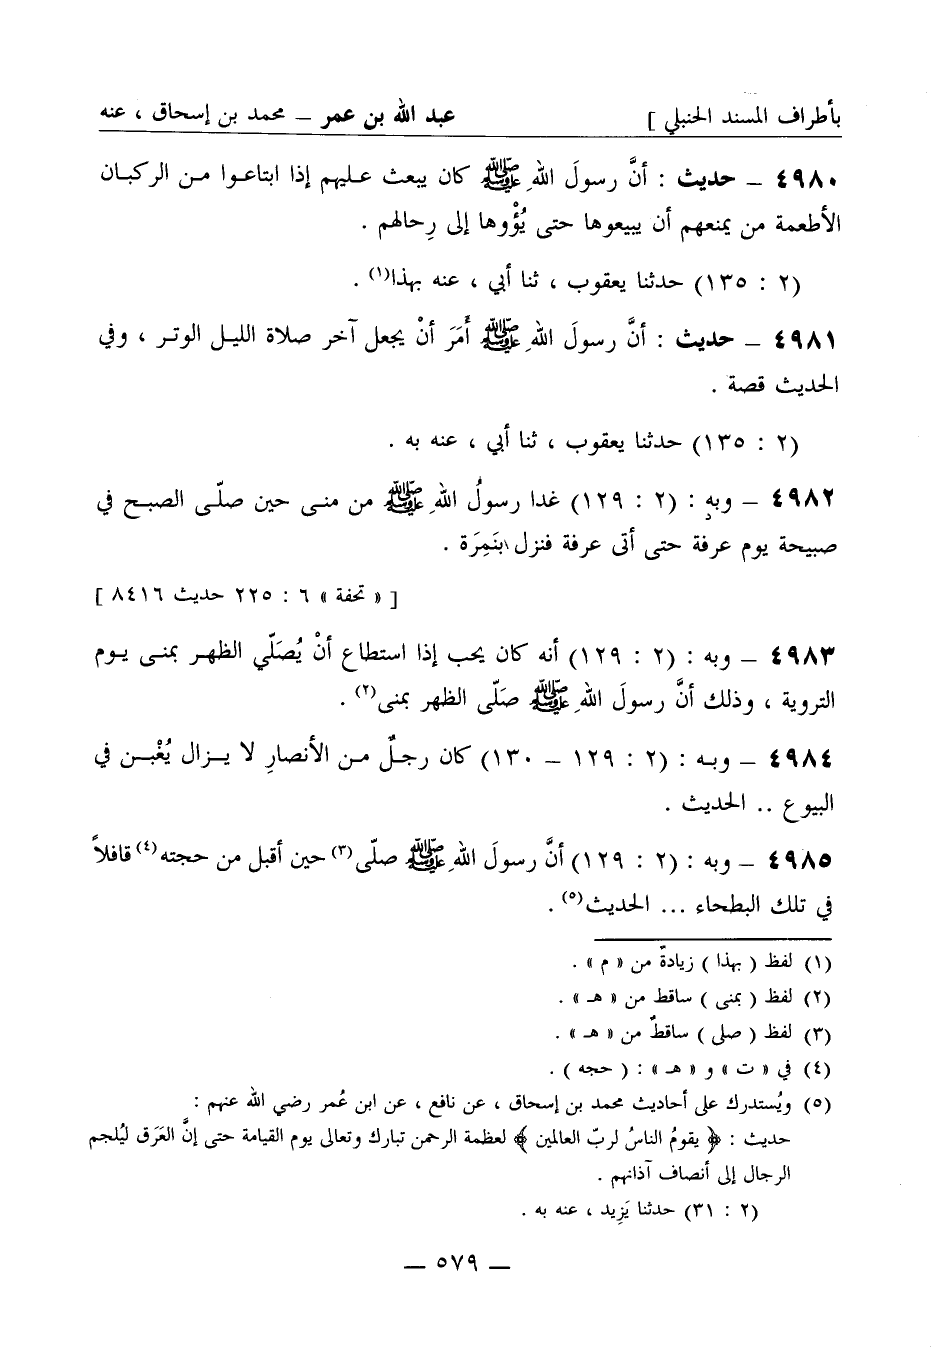 بأطراف المسند الحنبلي ] عبد الله بن عمر – محمد بن إسحاق ، عنه
٤٩٨٠ – حديث : أنَّ رسولَ اللهِ ﷺ كان يبعث عليهم إذا ابتاعوا من الركبان
الأطعمة من يمنعهم أن يبيعوها حتى يُؤْوها إلى رِحالهم .
(٢ : ١٣٥) حدثنا يعقوب ، ثنا أبي ، عنه بهذا(١) .
٤٩٨١ – حديث : أنَّ رسولَ اللهِ ﷺ أَمَرَ أنْ يجعل آخر صلاة الليل الوتر ، وفي
الحديث قصة .
(٢ : ١٣٥) حدثنا يعقوب ، ثنا أبي ، عنه به .
٤٩٨٢ – وبهِ : (٢ : ١٢٩) غدا رسولُ اللهِ ﷺ من منى حين صلّى الصبح في
صبيحة يوم عرفة حتى أتى عرفة فنزل بنَمِرَة .
[ « تحفة » ٦ : ٢٢٥ حديث ٨٤١٦ ]
٤٩٨٣ – وبه : (٢ : ١٢٩) أنه كان يحب إذا استطاع أنْ يُصَلّي الظهر بمنى يوم
التروية ، وذلك أنَّ رسولَ اللهِ ﷺ صَلّى الظهر بمنى(٢) .
٤٩٨٤ – وبه : (٢ : ١٢٩ – ١٣٠) كان رجلٌ من الأنصارِ لا يزال يُغْبن في
البيوع .. الحديث .
٤٩٨٥ – وبه : (٢ : ١٢٩) أنَّ رسولَ اللهِ ﷺ صلّى(٣) حين أقبل من حجته(٤) قافلاً
في تلك البطحاء ... الحديث(٥) .
(١) لفظ ( بهذا ) زيادةٌ من « م » .
(٢) لفظ ( بمنى ) ساقط من « هـ » .
(٣) لفظ ( صلى ) ساقطٌ من « هـ » .
(٤) في « ت » و « هـ » : ( حجه ) .
(٥) ويُستدرك على أحاديث محمد بن إسحاق ، عن نافع ، عن ابن عُمر رضي الله عنهم :
حديث : ﴿ يقومُ الناسُ لربّ العالمين ﴾ لعظمة الرحمن تبارك وتعالى يوم القيامة حتى إنَّ العَرَق ليُلجم
الرجال إلى أنصاف آذانهم .
(٢ : ٣١) حدثنا يَزِيد ، عنه به .
– ٥٧٩ –